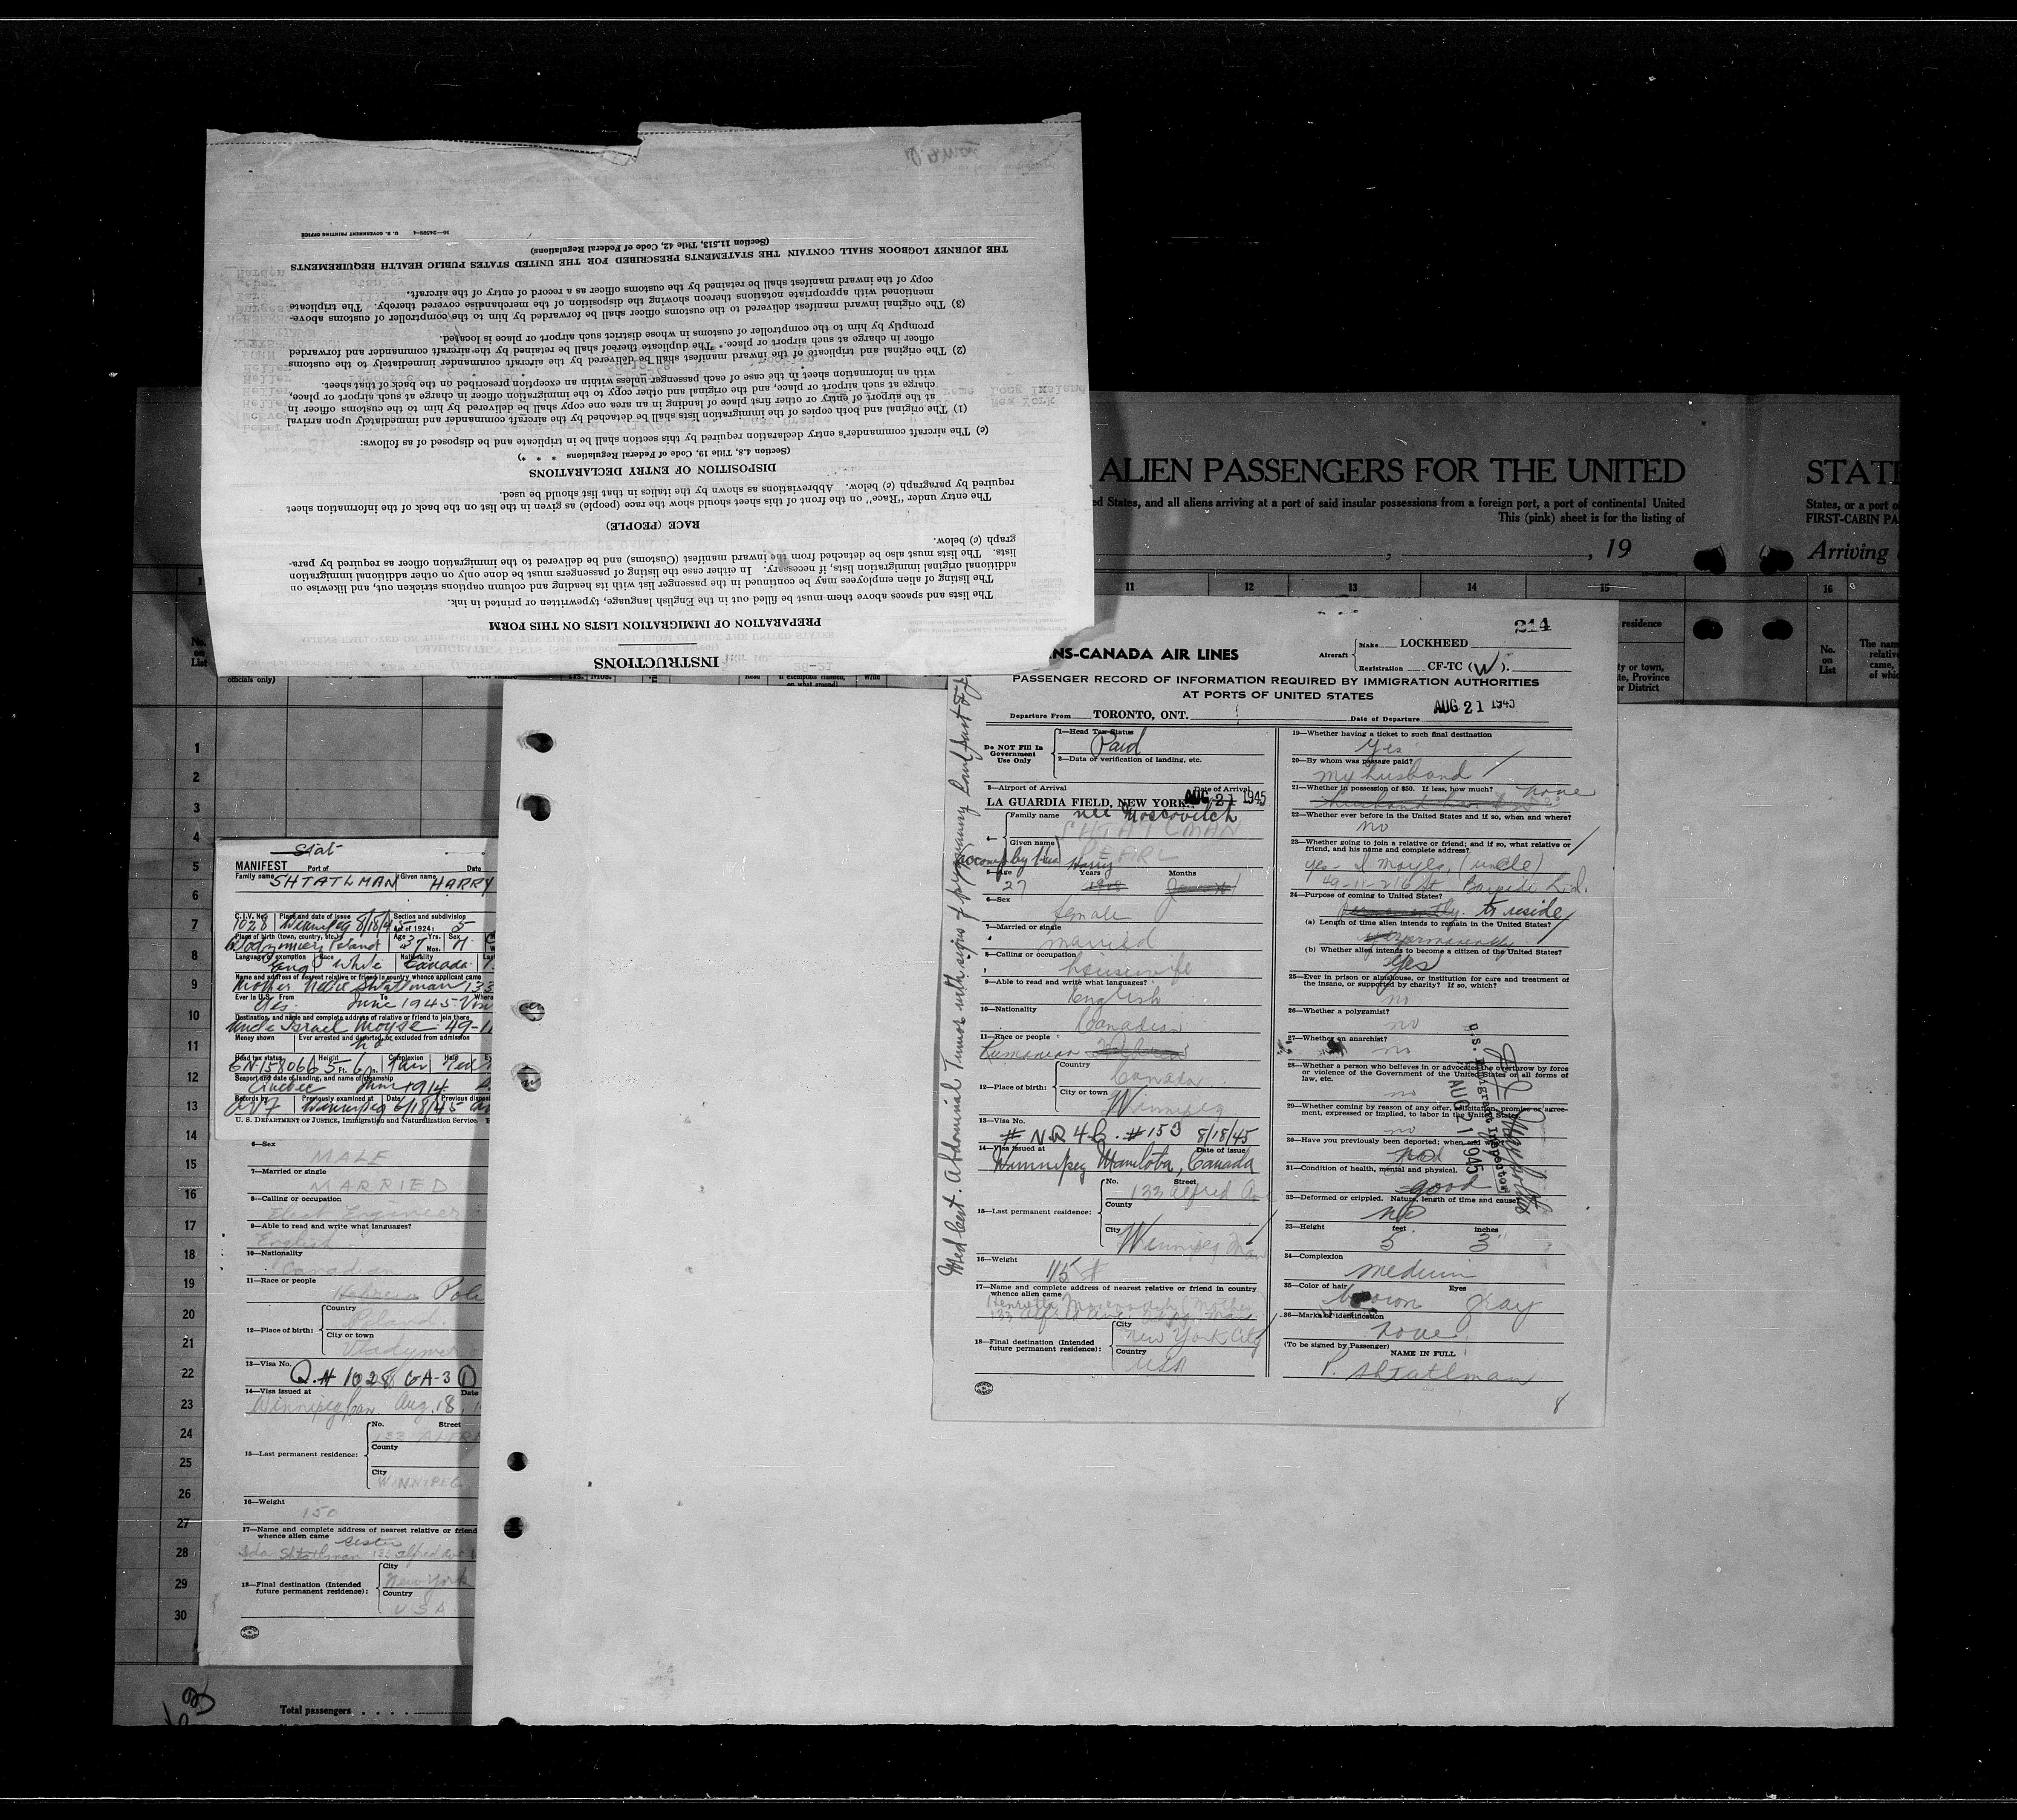 INSTRUCTIONS
PREPARATION OF IMMIGRATION LISTS ON THIS FORM
The lists and spaces above them must be filled out in the English language, typewritten or printed in ink.
The listing of alien employees may be continued in the passenger list with its heading and column captions stricken out, and likewise on
additional original immigration lists, if necessary. In either case the listing of passengers must be done only on other additional immigration
lists. The lists must also be detached from the inward manifest (Customs) and be delivered to the immigration officer as required by para-
graph (c) below.
RACE (PEOPLE)
The entry under "Race" on the front of this sheet should show the race (people) as given in the list on the back of the information sheet
required by paragraph (c) below. Abbreviations as shown by the italics in that list should be used.
DISPOSITION OF ENTRY DECLARATIONS
(Section 4.8, Title 19, Code of Federal Regulations * * *)
(c) The aircraft commander's entry declaration required by this section shall be in triplicate and be disposed of as follows:
(1) The original and both copies of the immigration lists shall be detached by the aircraft commander and immediately upon arrival
at the airport of entry or other first place of landing in an area one copy shall be delivered by him to the customs officer in
charge at such airport or place, and the original and other copy to the immigration officer in charge at such airport or place,
with an information sheet in the case of each passenger unless within an exception prescribed on the back of that sheet.
(2) The original and triplicate of the inward manifest shall be delivered by the aircraft commander immediately to the customs
officer in charge at such airport or place. The duplicate thereof shall be retained by the aircraft commander and forwarded
promptly by him to the comptroller of customs in whose district such airport or place is located.
(3) The original inward manifest delivered to the customs officer shall be forwarded by him to the comptroller of customs above-
mentioned with appropriate notations thereon showing the disposition of the merchandise covered thereby. The triplicate
copy of the inward manifest shall be retained by the customs officer as a record of entry of the aircraft.
THE JOURNEY LOGBOOK SHALL CONTAIN THE STATEMENTS PRESCRIBED FOR THE UNITED STATES PUBLIC HEALTH REQUIREMENTS
(Section 11.513, Title 42, Code of Federal Regulations)
16—24599-4 U. S. GOVERNMENT PRINTING OFFICE
ALIEN PASSENGERS FOR THE UNITED
ed States, and all aliens arriving at a port of said insular possessions from a foreign port, a port of continental United
This (pink) sheet is for the listing of
, , 19
STATE
States, or a port o
FIRST-CABIN PA
Arriving
11 12 13 14 15 16
residence
ty or town,
te, Province
or District
No.
on
List
The nam
relative
came,
of whic
No.
on
List
officials only)
1
2
3
4
5
6
7
8
9
10
11
12
13
14
15
16
17
18
19
20
21
22
23
24
25
26
27
28
29
30
Total passengers . . . .
Stat
MANIFEST Port of Date
Family name SHTATLMAN Given name HARRY
C.I.V. No. 1028 Place and date of issue Winnipeg 8/18/45 Section and subdivision Act of 1924: 5
Place of birth (town, country, etc.) Poland Age 37 Yrs. Mos. Sex M
Language or exemption Eng Race White Nationality Canada
Name and address of nearest relative or friend in country whence applicant came
Mother Nellie Shtatlman 133
Ever in U.S. Yes From To June 1945 Where
Destination, and name and complete address of relative or friend to join there
Uncle Israel Moyse 49-11
Money shown Ever arrested and deported, or excluded from admission
no
Head tax status Height 5 Ft. 6 In. Complexion Fair Hair Red
Seaport and date of landing, and name of steamship
Quebec 1914
Records by Previously examined at Winnipeg Date 6/18/45 Previous dispos
U. S. DEPARTMENT OF JUSTICE, Immigration and Naturalization Service
6—Sex
MALE
7—Married or single
MARRIED
8—Calling or occupation
Elect. Engineer
9—Able to read and write what languages?
English
10—Nationality
Canadian
11—Race or people
Hebrew Pole
12—Place of birth:
Country
Poland
City or town
13—Visa No. Q. # 1028 GA-3 (1)
14—Visa issued at Date
Winnipeg, Can. Aug. 18,
15—Last permanent residence:
No. Street
133 ALFRE
County
City
WINNIPEG
16—Weight
150
17—Name and complete address of nearest relative or friend
whence alien came
sister
Ida Shtatlman 133 Alfred Ave
18—Final destination (Intended
future permanent residence):
City
New York
Country
USA
214
NS-CANADA AIR LINES
Aircraft
Make LOCKHEED
Registration CF-TC (W).
PASSENGER RECORD OF INFORMATION REQUIRED BY IMMIGRATION AUTHORITIES
AT PORTS OF UNITED STATES
Departure From TORONTO, ONT. Date of Departure AUG 21 1945
Do NOT Fill In
Government
Use Only
1—Head Tax Status
Paid
2—Data or verification of landing, etc.
3—Airport of Arrival Date of Arrival
LA GUARDIA FIELD, NEW YORK. AUG 21 1945
4—
Family name née Moscovitch
SHTATLMAN
Given name PEARL
accomp by hus Harry
5—Age Years Months
27
6—Sex
female
7—Married or single
married
8—Calling or occupation
housewife
9—Able to read and write what languages?
English
10—Nationality
Canadian
11—Race or people
Rumanian Hebrew
12—Place of birth:
Country
Canada
City or town
Winnipeg
13—Visa No.
# NQ 4B. #153 8/18/45
14—Visa issued at Date of issue
Winnipeg Manitoba, Canada
15—Last permanent residence:
No. Street
133 Alfred Ave
County
City
Winnipeg Man
16—Weight
115 #
17—Name and complete address of nearest relative or friend in country
whence alien came
Henrietta Moscovitch (Mother)
133 Alfred Ave. Wpg. Man
18—Final destination (Intended
future permanent residence):
City
New York City
Country
USA
Med Cert. Abdominal Tumor with signs of pregnancy
19—Whether having a ticket to such final destination
Yes
20—By whom was passage paid?
my husband
21—Whether in possession of $50. If less, how much? none
22—Whether ever before in the United States and if so, when and where?
no
23—Whether going to join a relative or friend; and if so, what relative or
friend, and his name and complete address?
yes - I Moyse, (uncle)
49-11-216 St Bayside L.I.
24—Purpose of coming to United States?
permanently. to reside
(a) Length of time alien intends to remain in the United States?
permanently
(b) Whether alien intends to become a citizen of the United States?
Yes
25—Ever in prison or almshouse, or institution for cure and treatment of
the insane, or supported by charity? If so, which?
no
26—Whether a polygamist?
no
27—Whether an anarchist?
no
28—Whether a person who believes in or advocates the overthrow by force
or violence of the Government of the United States or all forms of
law, etc.
no
29—Whether coming by reason of any offer, solicitation, promise or agree-
ment, expressed or implied, to labor in the United States
no
30—Have you previously been deported; when and
no
31—Condition of health, mental and physical.
good
32—Deformed or crippled. Nature, length of time and cause
no
33—Height feet inches
5 3
34—Complexion
medium
35—Color of hair Eyes
brown gray
36—Marks of identification
none
(To be signed by Passenger) NAME IN FULL
P. Shtatlman
U.S. Immigrant Inspector
AUG 21 1945
8